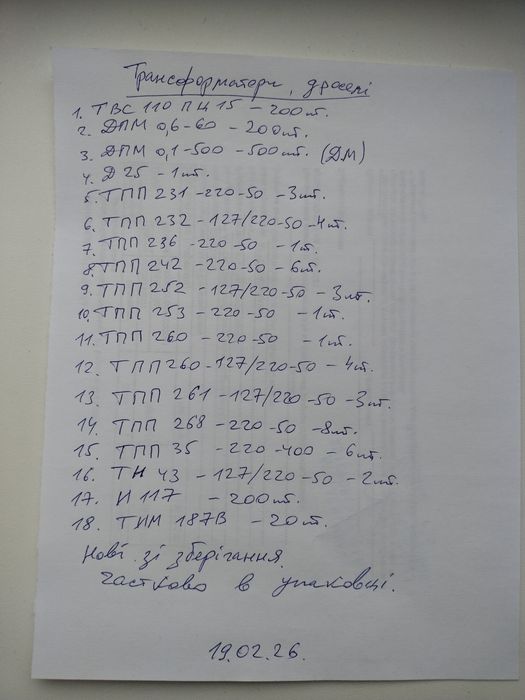 Трансформатори, дроселі
1. ТВС 110 ПЦ 15 – 200шт.
2. ДПМ 0,6-60 – 200шт.
3. ДПМ 0,1-500 – 500шт. (ДМ)
4. Д 25 – 1шт.
5. ТПП 231 -220-50 – 3шт.
6. ТПП 232 -127/220-50 -4шт.
7. ТПП 236 -220-50 – 1шт.
8. ТПП 242 -220-50 – 6шт.
9. ТПП 252 -127/220-50 – 3шт.
10. ТПП 253 -220-50 – 1шт.
11. ТПП 260 -220-50 – 1шт.
12. ТПП 260 -127/220-50 – 4шт.
13. ТПП 261 -127/220-50 -3шт.
14. ТПП 268 -220-50 -8шт.
15. ТПП 35 -220-400 – 6шт.
16. ТН 43 -127/220-50 – 2шт.
17. И 117 – 200шт.
18. ТИМ 187В – 20шт.
Нові зі зберігання.
Частково в упаковці.
19.02.26.